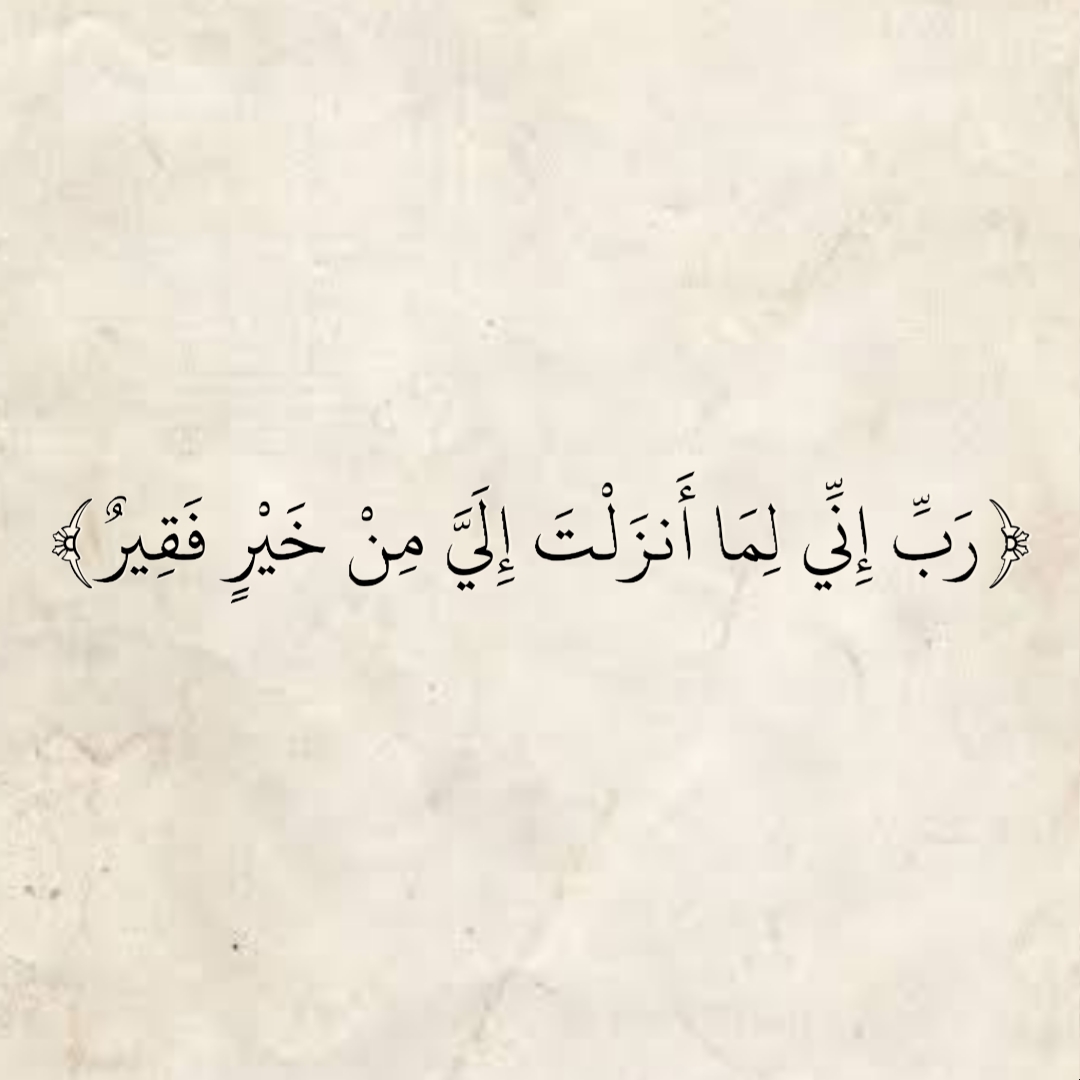 ﴿رَبِّ إِنِّي لِمَا أَنزَلْتَ إِلَيَّ مِنْ خَيْرٍ فَقِيرٌ﴾